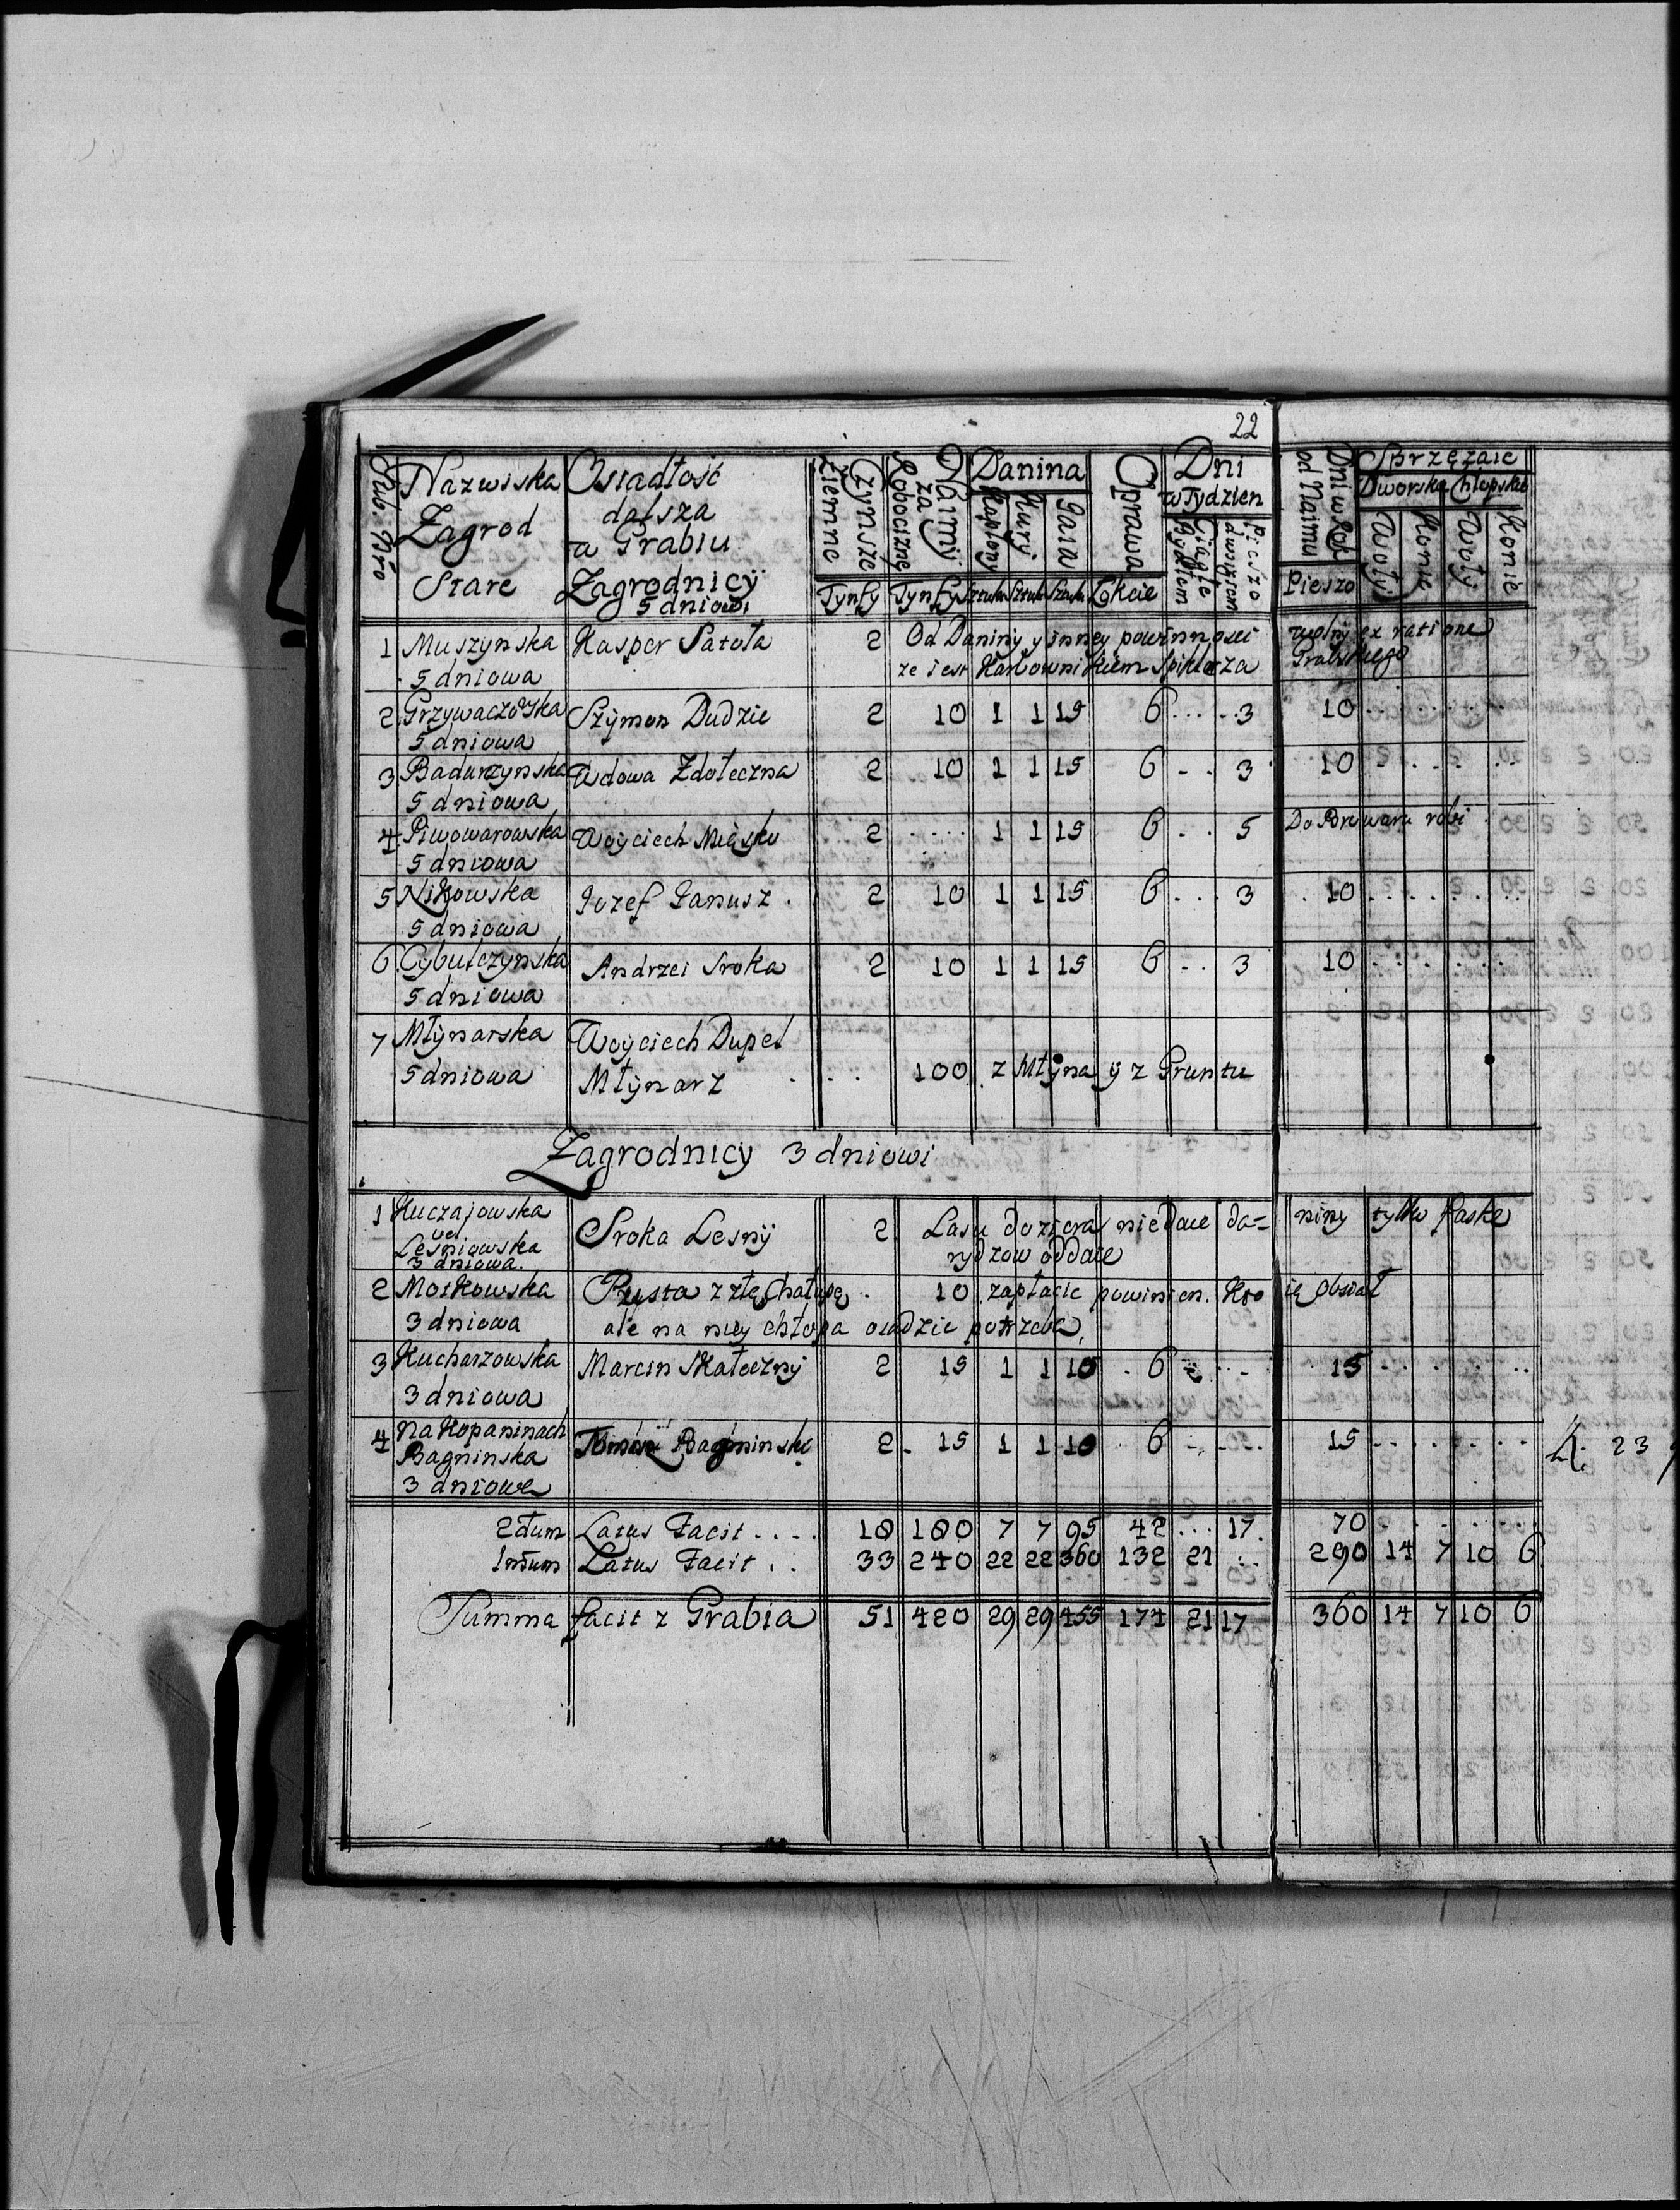 22
Nazwiska Zagrod Stare
Osiadłość dalsza w Grabiu Zagrodnicy 5 dniowi
Czynsze Ziemne Tynfy
Naimy za Robocizne Tynfy
Danina
Kapłony Sztuki
Kury Sztuki
Jaia Sztuki
Oprawa Łokcie
Dni w Tydzien
Ciągłe Bydłem
Pieszo
Dni w Rok od Naimu Pieszo
Sprzężaie
Dworskie Chłopskie
Woły Konie Woły Konie
1 Muszynska Kasper Satoła 2 Od Daniny y inney powinnosci wolny ex ratione
5 dniowa ze iest Karbownikiem Spiklerza Grabskiego
2 Grzywaczowska Szymon Dudzic 2 10 1 1 15 6 . . . . . 3 10
5 dniowa
3 Badurzynska Wdowa Zdoleczna 2 10 1 1 15 6 . . . 3 10
5 dniowa
4 Piwowarowska Woyciech 2 . . . . 1 1 15 6 . . 5 Do Browaru robi
5 dniowa
5 Nikowska Jozef Janusz . 2 10 1 1 15 6 . . . 3 10
5 dniowa
6 Cybulczynska Andrzei Sroka 2 10 1 1 15 6 . . 3 10
5 dniowa
7 Młynarska Woyciech Dupel
5 dniowa Młynarz . . . 100 z Młyna y z Gruntu
Zagrodnicy 3 dniowi
1 Kuczajowska Sroka Lesny 2 Lasu doziera nie daie da= niny tylko faskę
vel Lesniowska rydzow oddaie
3 dniowa.
2 Motkowska Pusta z złą Chałupą . 10 zapłacic powinien. Kto ią obsiał
3 dniowa ale na niey chłopa osadzic potrzeba
3 Kucharzowska Marcin Skateczny 2 15 1 1 10 . 6 15
3 dniowa
4 Na Kopaninach Bagninski 2 . 15 1 1 10 6 15
Bagninska
3 dniowa
23
2dum Latus Facit . . . . 18 180 7 7 95 42 . . . 17. 70
1mum Latus Facit . . 33 240 22 22 360 132 21 . . 290 14 7 10 6
Summa facit z Grabia 51 420 29 29 455 174 21 17 360 14 7 10 6